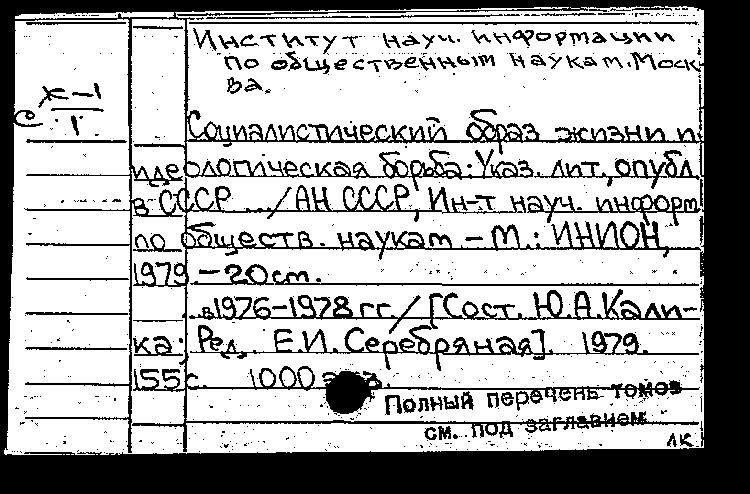 Институт науч. информации
по общественным наукам. Моск-
ва.
х-1
с 1.
Социалистический образ жизни и
идеологическая борьба: Указ. лит., опубл.
в СССР .../АН СССР, Ин-т науч. информ
по обществ. наукам - М.: ИНИОН,
1979. - 20 см.
..в 1976-1978 гг./ [Сост. Ю.А. Кали-
ка; Ред. Е.И. Серебряная]. 1979.
155 с. 1000 экз.
Полный перечень томов
см. под заглавием
ЛК